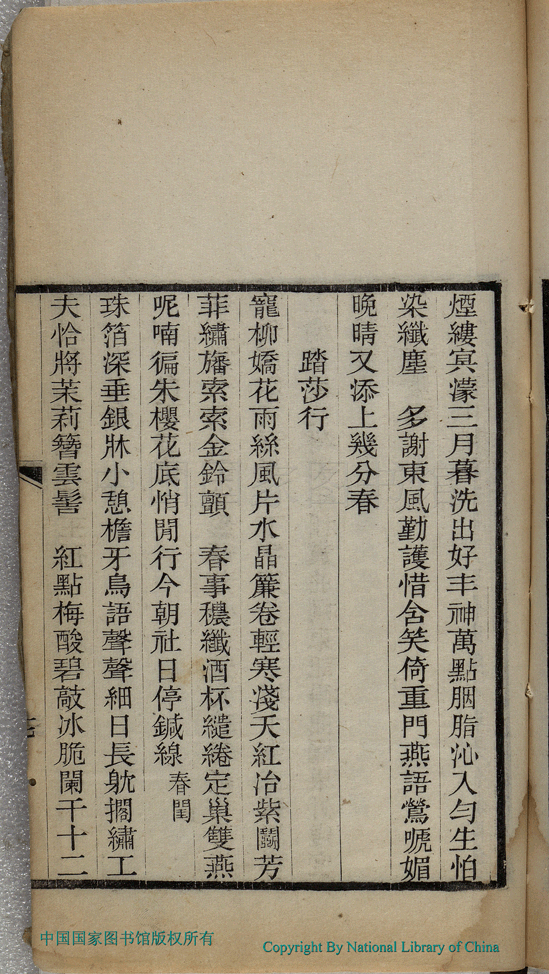 煙縷㝠濛三月暮洗出好丰神萬點胭脂沁入勻生怕
染纖塵　多謝東風勤護惜含笑倚重門燕語鶯嗁媚
晚晴又添上幾分春
踏莎行
寵柳嬌花雨絲風片水晶簾卷輕寒淺天紅冶紫鬭芳
菲繡旛索索金鈴顫　春事穠纖酒杯繾綣定巢雙燕
呢喃徧朱櫻花底悄閒行今朝社日停鍼線春閨
珠箔深垂銀牀小憩檐牙鳥語聲聲細日長躭擱繡工
夫恰將茉莉簪雲髻　紅點梅酸碧敲冰脆闌干十二
中国国家图书馆版权所有
Copyright By National Library of China